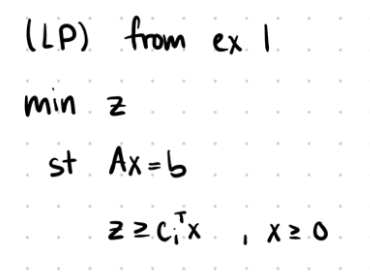 (LP) from ex 1
min z
st Ax = b
z ≥ cᵢᵀx , x ≥ 0